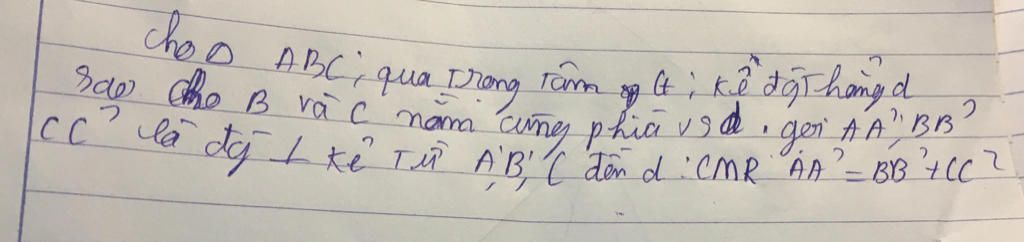 cho Δ ABC; qua trọng tâm G; kẻ đg thẳng d
sao cho B và C nằm cùng phía vs d. gọi AA', BB'
CC' là đg ⊥ kẻ Từ A, B, C đến d : CMR AA' = BB' + CC'